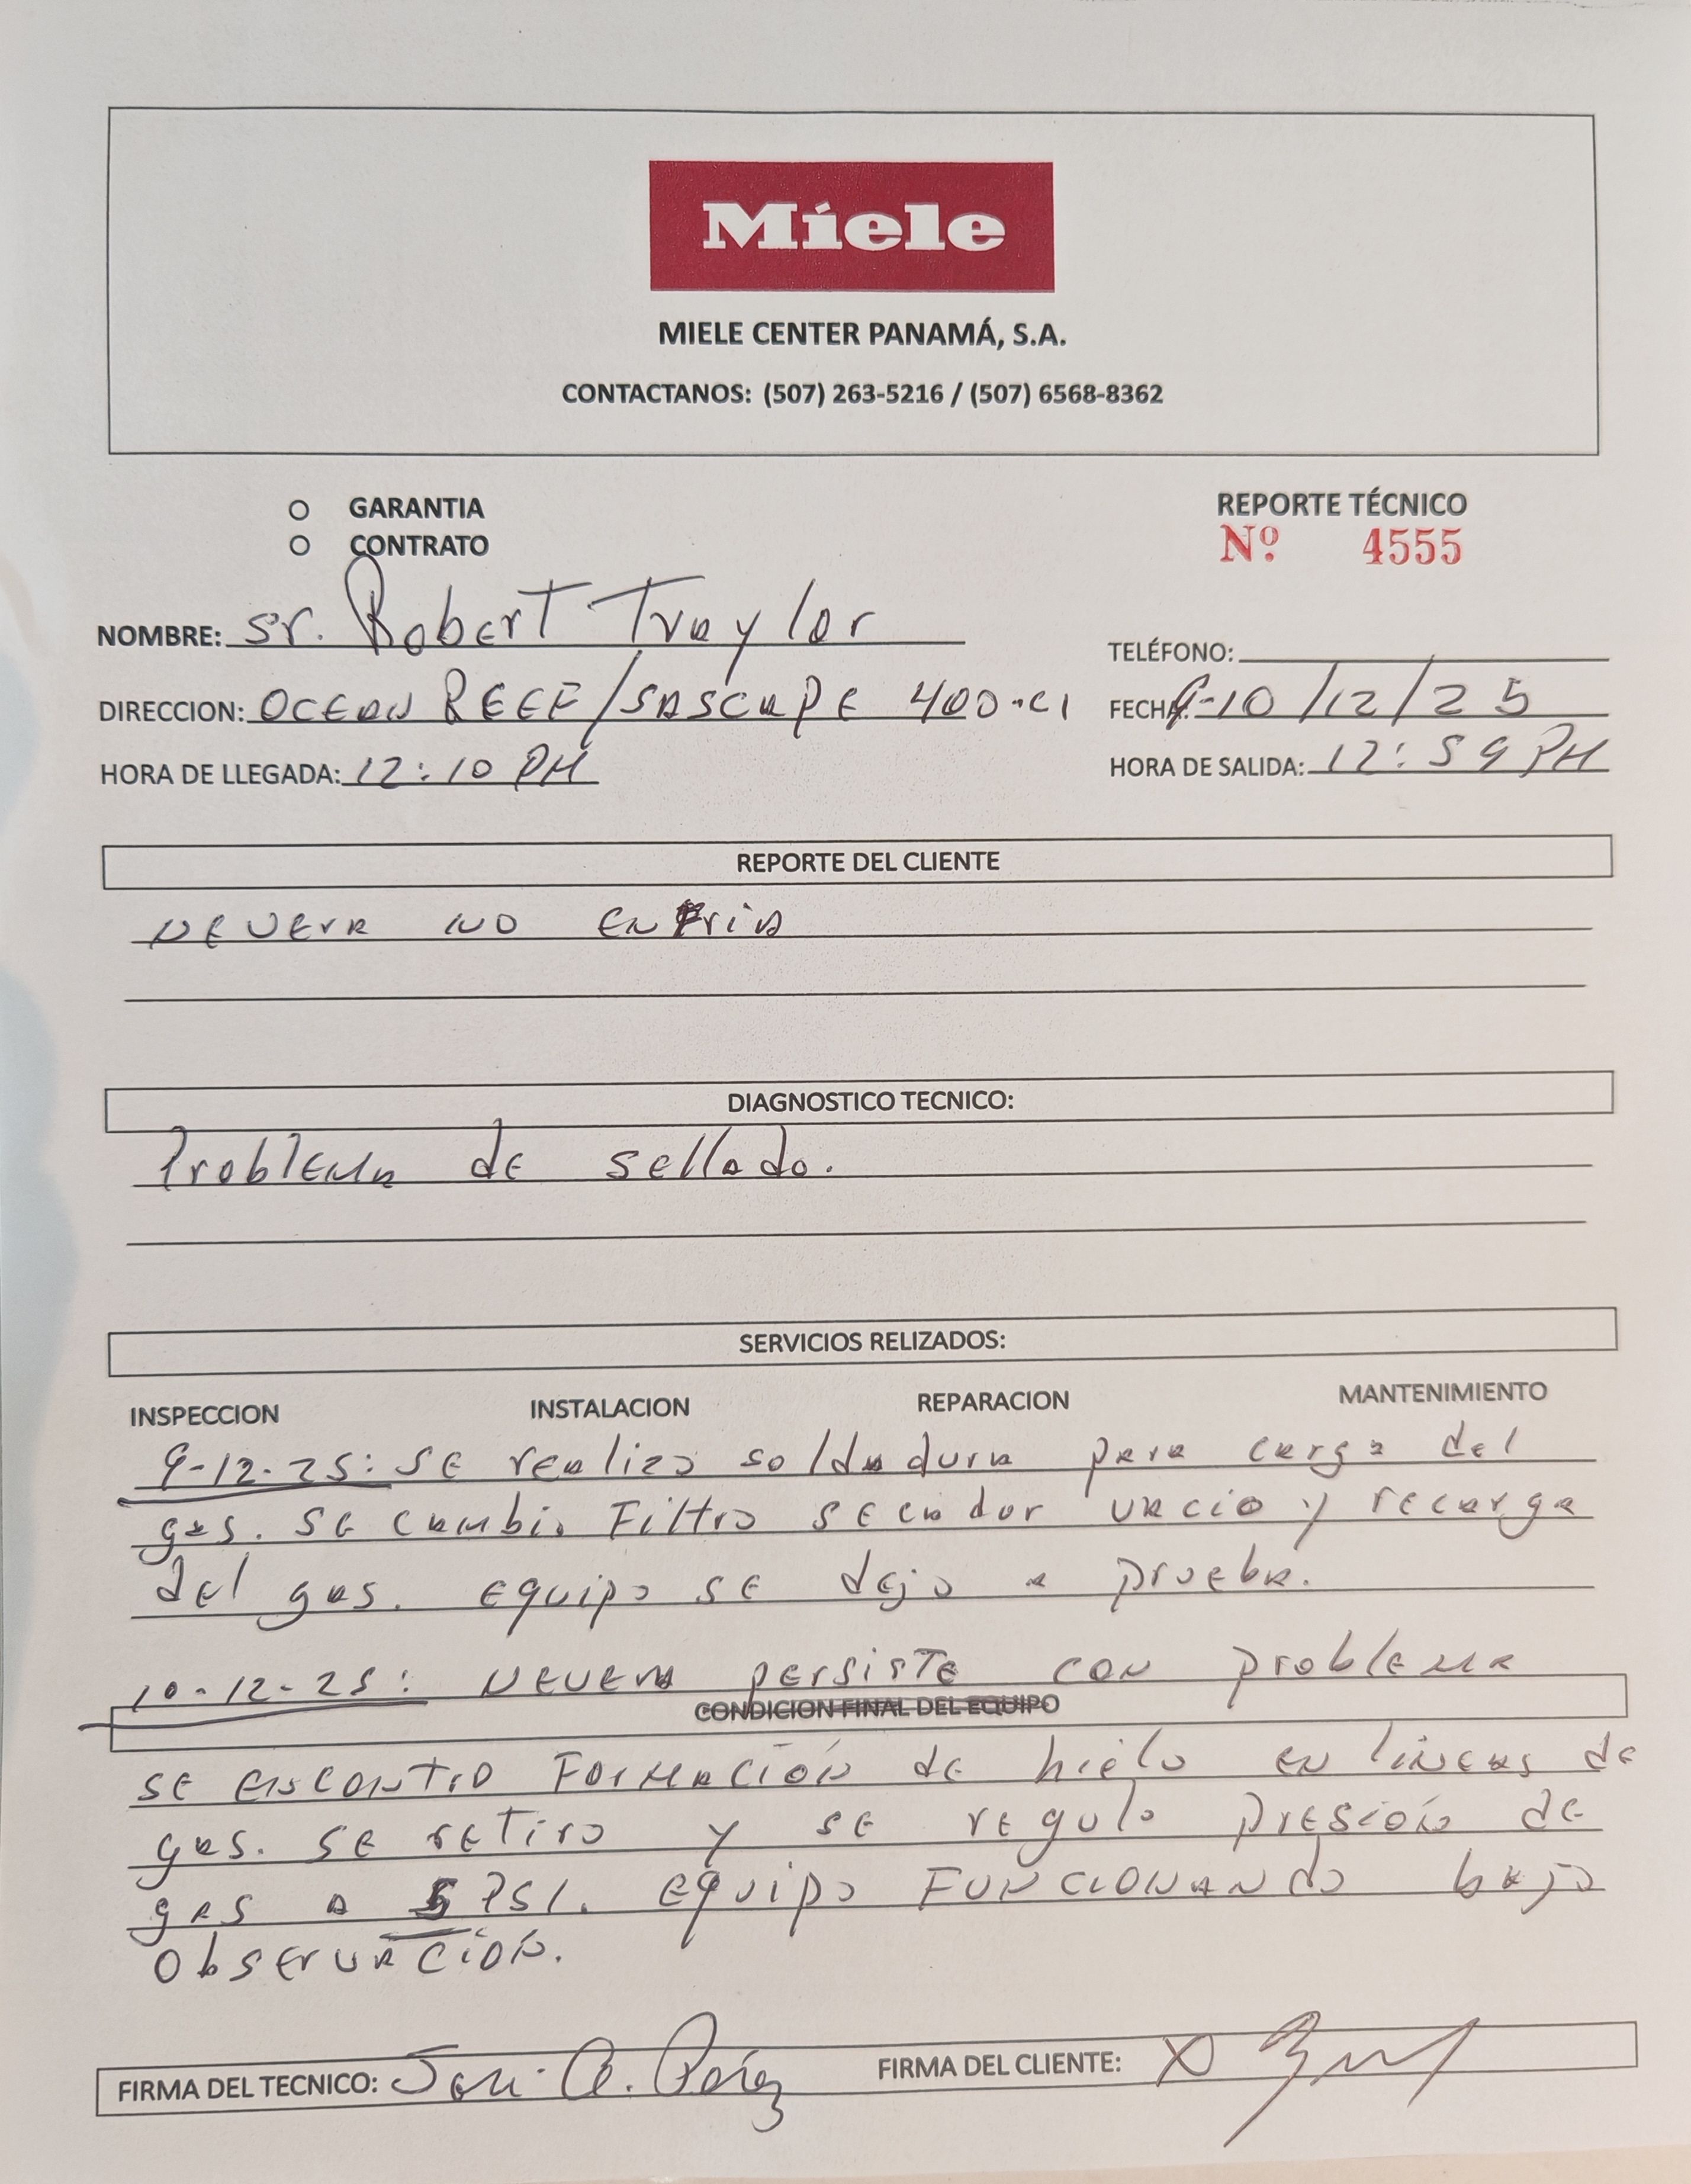 Miele
MIELE CENTER PANAMÁ, S.A.
CONTACTANOS: (507) 263-5216 / (507) 6568-8362
GARANTIA
CONTRATO
REPORTE TÉCNICO
Nº 4555
NOMBRE: Sr. Robert Traylor
TELÉFONO:
DIRECCION: OCEAN REEF/SASCAPE 400-C1
FECHA: 9-10/12/25
HORA DE LLEGADA: 12:10 PM
HORA DE SALIDA: 12:59 PM
REPORTE DEL CLIENTE
NEVERA NO ENFRIA
DIAGNOSTICO TECNICO:
Problema de sellado.
SERVICIOS RELIZADOS:
INSPECCION INSTALACION REPARACION MANTENIMIENTO
9-12-25: SE realizo soldadura para carga del
gas. SE cambio Filtro secador vacio y recarga
del gas. equipo SE dejo a prueba.
10-12-25: NEVERA persiste con problema
CONDICION FINAL DEL EQUIPO
SE encontro Formación de hielo en lineas de
gas. SE retiro y se regulo presión de
gas a 5 PSI. equipo FUNCIONANdo bajo
Observación.
FIRMA DEL TECNICO: José A. Pérez
FIRMA DEL CLIENTE: X